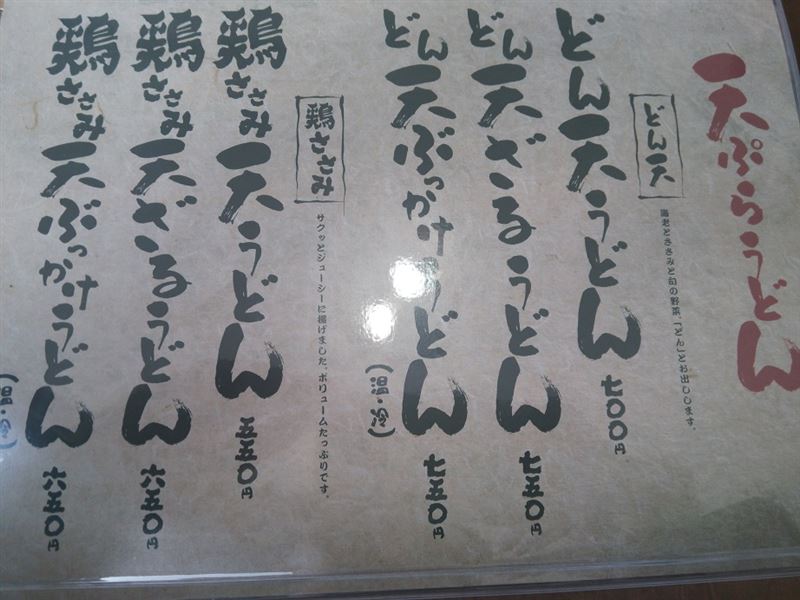 天ぷらうどん
どん天
海老とささみと旬の野菜、「どん」とお出しします。
どん天うどん 七〇〇円
どん天ざるうどん 七五〇円
どん天ぶっかけうどん(温・冷) 七五〇円
鶏ささみ
サクッとジューシーに揚げました。ボリュームたっぷりです。
鶏ささみ天うどん 五五〇円
鶏ささみ天ざるうどん 六五〇円
鶏ささみ天ぶっかけうどん(温・冷) 六五〇円